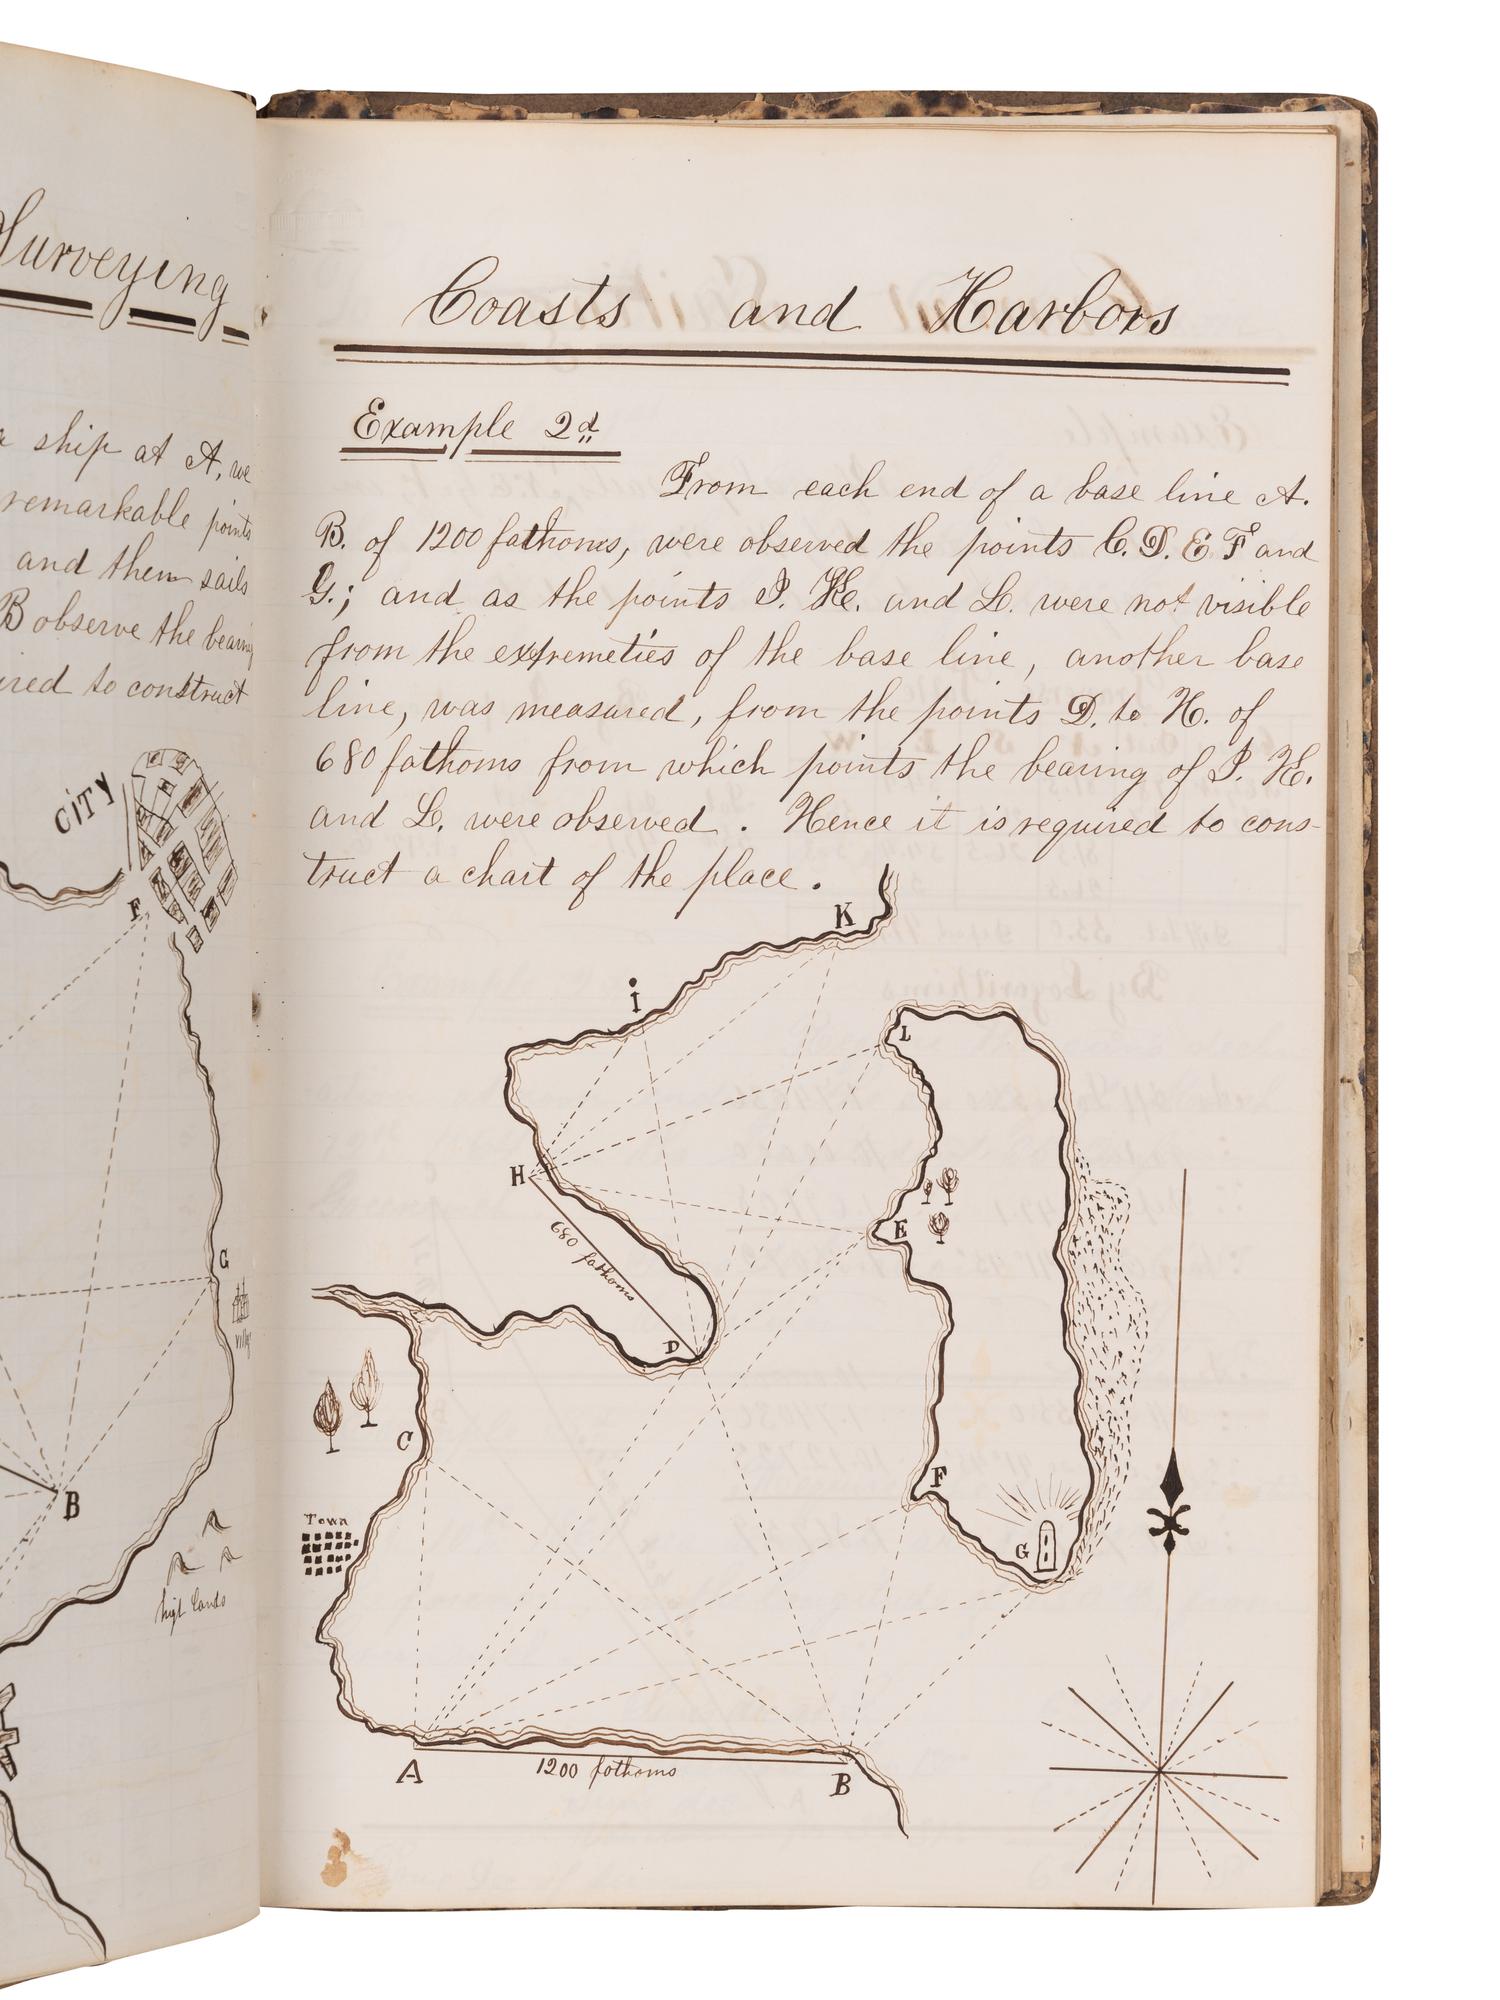 Surveying
ship at A, we
remarkable points
and then sails
B observe the bearing
ired to construct
CiTY
F
G
B
high lands
Coasts and Harbors
Example 2d
From each end of a base line A.
B. of 1200 fathoms, were observed the points C. D. E F and
G.; and as the points I. K. and L. were not visible
from the extremeties of the base line, another base
line, was measured, from the points D. to H. of
680 fathoms from which points the bearing of I. K.
and L. were observed. Hence it is required to cons-
truct a chart of the place.
K
I
L
H
E
680 fathoms
D
C
F
Town
G
A
1200 fathoms
B